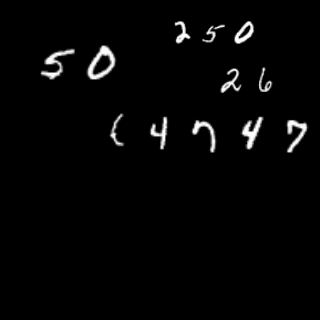 250
50
26
4747